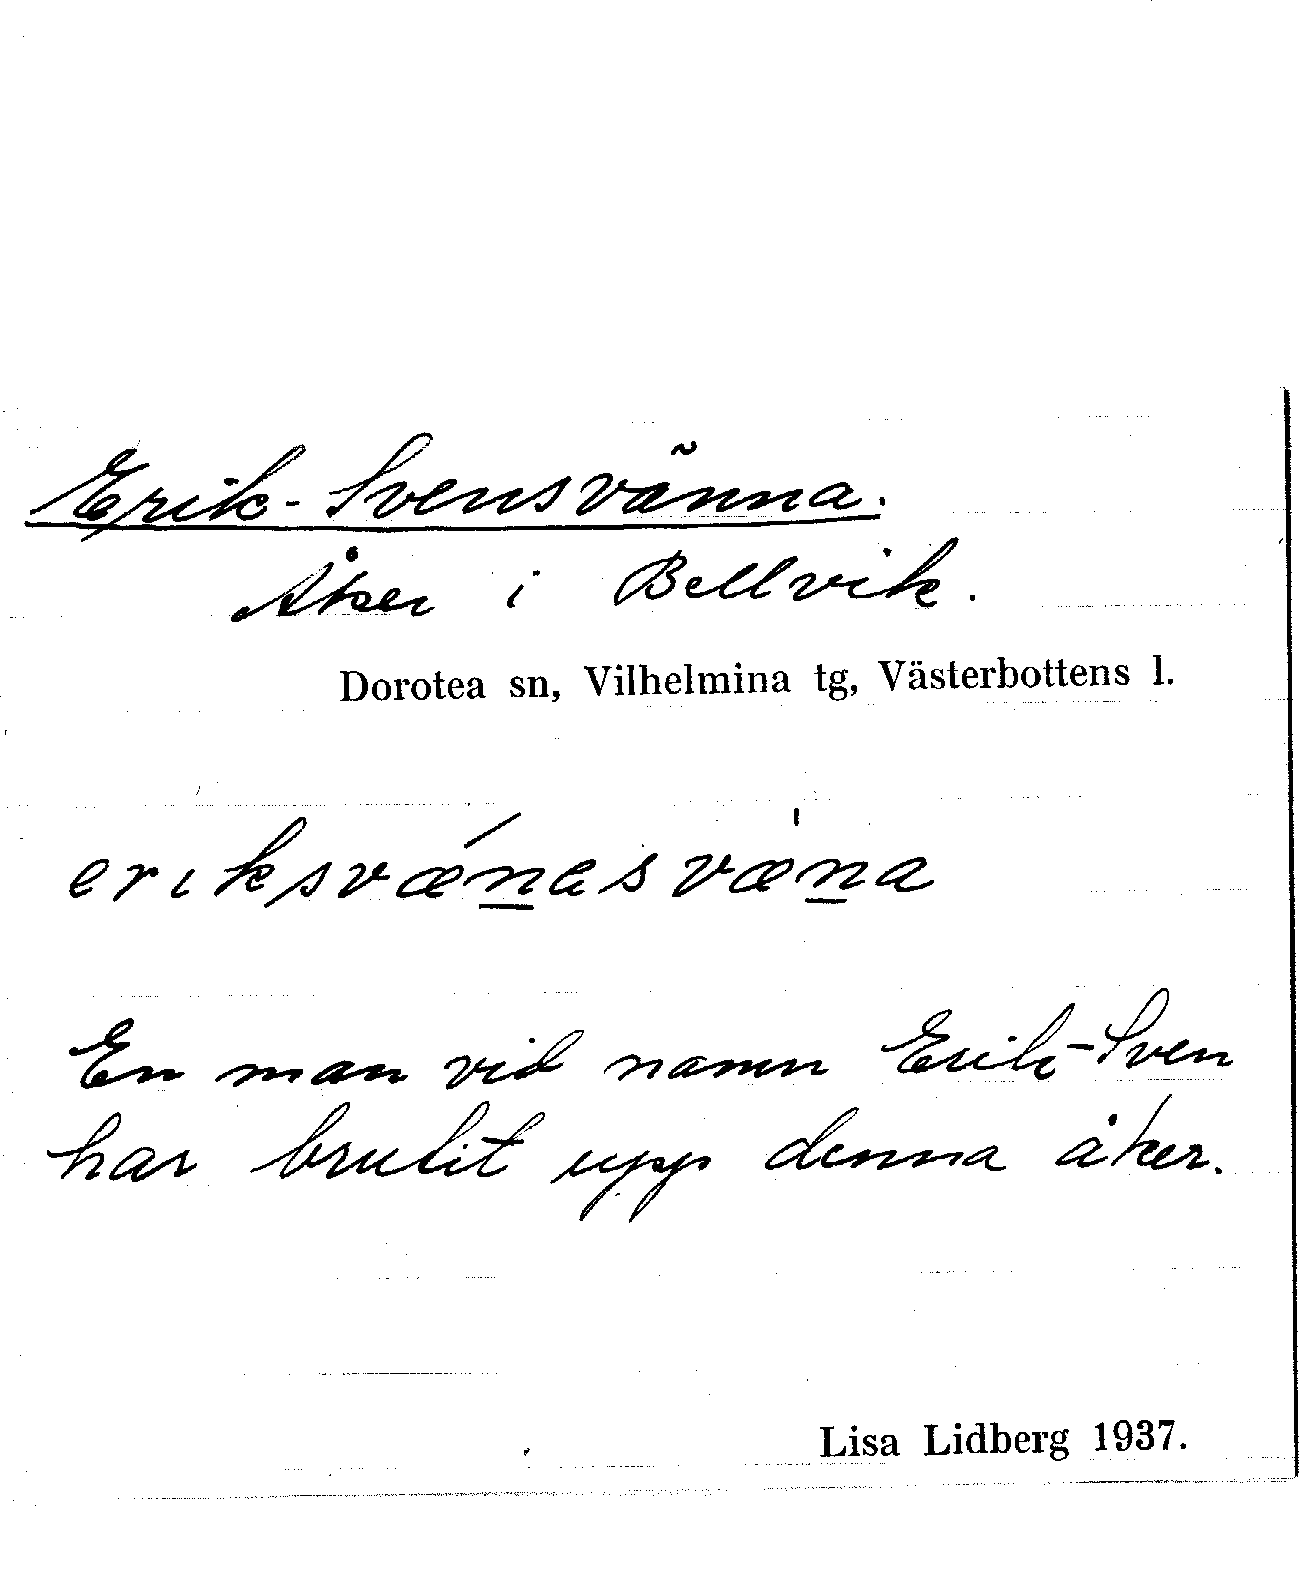 Erik-Svensvänna.
Åker i Bellvik.
Dorotea sn, Vilhelmina tg, Västerbottens l.
eriksvǽn̲asvæ̍n̲a
En man vid namn Erik-Sven
har brutit upp denna åker.
Lisa Lidberg 1937.